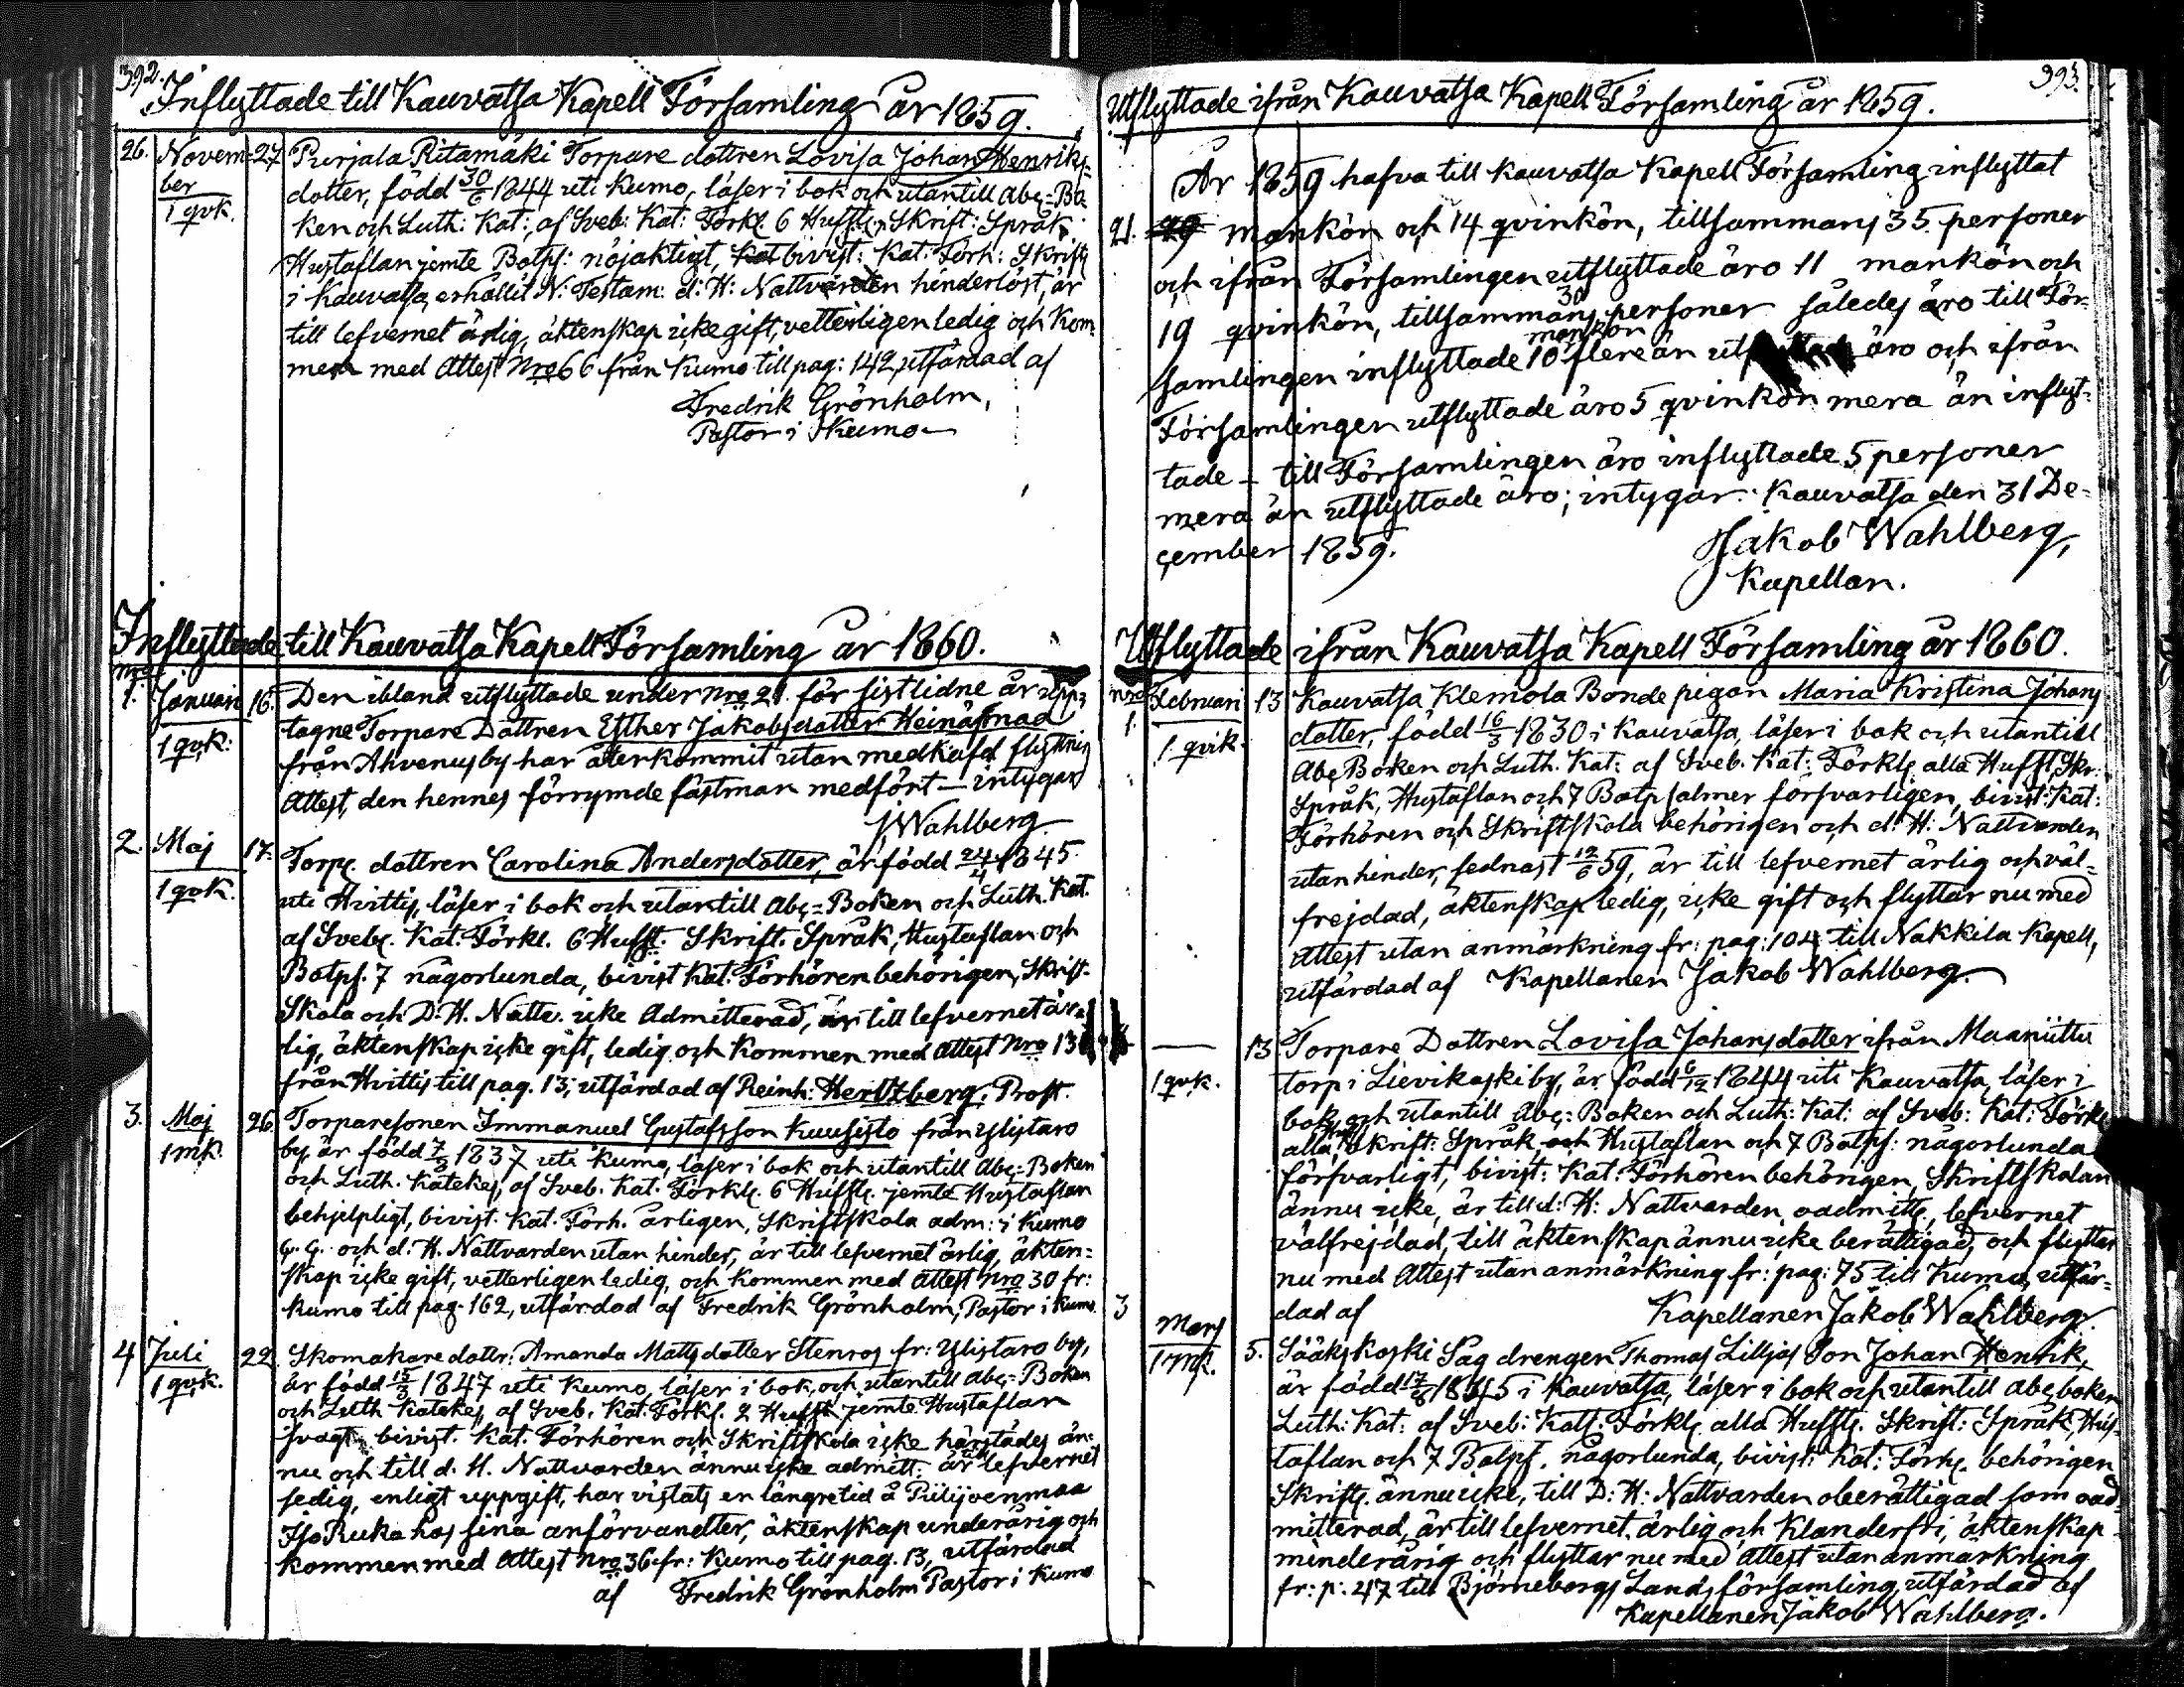 392.
Inflyttade till Kauvatsa Kapell Församling år 1859.
26. Novem= 27 Purjala Ritamäki Torpare dottren Lovisa Johan Henriks=
ber dotter, född 30/6 1844 uti Kumo, läser i bok och utantill Abc=Bo
1 qvk. ken och Luth: Kat:, af Sveb: Kat: Förkl. 6 Huffst: Skrift: Språk,
Hustaflan jemte Botps: nöjaktigt, bivist: Kat: Förh: Skrifts
i Kauvatsa, erhållit N: Testam: d: H: Nattvarden hinderlöst, är
till lefvernet ärlig, äktenskap icke gift, vetterligen ledig och kom=
mer med Attest Nro 66 från Kumo till pag: 142, utfärdad af
Fredrik Grönholm,
Pastor i Kumo
Inflyttade till Kauvatsa Kapell Församling år 1860.
Nro
1. Januari 16. Den ibland utflyttade under Nro 21. för sistlidne år upp=
tagne Torpare Dottren Esther Jakobsdotter Heinäsmad
1 qvk: från Ahvenus by har återkommit utan medhafd flyttnings
Attest, den hennes förrymde fästman medfört — intygar
J Wahlberg
2. Maj 17. Torp. dottren Carolina Andersdotter, är född 24/4 1845
1 qvk. uti Hvittis, läser i bok och utantill Abc=Boken och Luth. Kat.
af Sveb. Kat: Förkl. 6 Huffst. Skrift. Språk, Hustaflan och
Botps. 7 någorlunda, bivist Kat. Förhören behörigen, Skrift=
Skola och D. H. Nattv. icke Admitterad, är till lefvernet är=
lig, äktenskap icke gift, ledig och kommer med Attest Nro 13
från Hvittis till pag. 13, utfärdad af Reinh: Hertzberg, Prost.
3. Maj 26. Torparesonen Immanuel Gustafsson Kuusisto från Ylistaro
1 mk. by, är född 7/3 1837 uti Kumo, läser i bok och utantill Abc=Boken
och Luth. Katekes, af Sveb. Kat. Förkl. 6 Huffst. jemte Hustaflan
behjelpligt, bivist. Kat. Förh. årligen, Skriftskola adm: i Kumo
och d. H. Nattvarden utan hinder, är till lefvernet ärlig, äkten=
skap icke gift, vetterligen ledig, och kommer med Attest Nro 30 fr:
Kumo till pag. 162, utfärdad af Fredrik Grönholm, Pastor i Kumo
4 Juli 22. Skomakare dottr: Amanda Mattsdotter Stenros fr: Ylistaro by,
1 qvk. är född 15/3 1847 uti Kumo, läser i bok, och utantill Abc=Boken
och Luth Katekes, af Sveb. Kat. Förkl. 2 Huffst jemte Hustaflan
svagt, bivist. Kat. Förhören och Skriftskola icke härstädes än=
nu och till d. H. Nattvarden ännu icke admitt: är lefvernet
sedig, enligt uppgift, har vistats en längre tid å
Iso Ruka hos sina anförvandter, äktenskap underårig och
kommer med Attest Nro 36 fr: Kumo till pag. 13, utfärdad
af Fredrik Grönholm Pastor i Kumo
393.
Utflyttade ifrån Kauvatsa Kapell Församling år 1859.
År 1859 hafva till Kauvatsa Kapell Församling inflyttat
21. mankön och 14 qvinkön, tillsammans 35 personer
och ifrån Församlingen utflyttade äro 11 mankön och
19 qvinkön, tillsammans 30 personer således äro till För=
samlingen inflyttade 10 mankön flere än äro och ifrån
Församlingen utflyttade äro 5 qvinkön mera än inflyt=
tade — till Församlingen äro inflyttade 5 personer
mera än utflyttade äro; intygar. Kauvatsa den 31 De=
cember 1859.
Jakob Wahlberg,
Kapellan.
Utflyttade ifrån Kauvatsa Kapell Församling år 1860.
Nro
1. Februari 13 Kauvatsa Klemola Bonde pigan Maria Kristina Johans
1 qvk. dotter, född 16/3 1830 i Kauvatsa, läser i bok och utantill
Abc Boken och Luth. Kat: af Sveb. Kat: Förkl. alla Huffst, Skr:
Språk, Hustaflan och 7 Botpsalmer försvarligen, bivist: Kat:
Förhören och Skriftskola behörigen och d: H: Nattvarden
utan hinder, sednast 12/6 59, är till lefvernet ärlig och väl=
frejdad, äktenskap ledig, icke gift och flyttar nu med
Attest utan anmärkning fr: pag: 104 till Nakkila Kapell,
utfärdad af Kapellanen Jakob Wahlberg.
— 13 Torpare Dottren Lovisa Johansdotter ifrån Maaniittu
1 qvk. torp i Lievikoski by, är född 6/12 1844 uti Kauvatsa, läser i
bok och utantill Abc: Boken och Luth: Kat: af Sveb: Kat: Förkl
alla Skrift: Språk, Hustaflan och 7 Botps: någorlunda
försvarligt, bivist: Kat: Förhören behörigen, Skriftskolan
ännu icke, är till d: H: Nattvarden oadmitt, lefvernet
välfrejdad, till äktenskap ännu icke berättigad, och flyttar
nu med Attest utan anmärkning fr: pag: 75 till Kumo, utfär=
dad af Kapellanen Jakob Wahlberg.
3 Mars 5. Sääkskoski Sag drengen Thomas Lilljas Son Johan Henrik,
1 mk. är född i Kauvatsa, läser i bok och utantill Abc boken
Luth: Kat: af Sveb: Kat: Förkl. alla Huffst. Skrift: Språk, Hus=
taflan och 7 Botps. någorlunda, bivist: Kat: Förh. behörigen
Skrifts. ännu icke, till D: H: Nattvarden oberättigad som oad=
mitterad, är till lefvernet ärlig och klanderfri, äktenskap
minderårig och flyttar nu med Attest utan anmärkning
fr: p: 247 till Björneborgs Lands församling, utfärdad af
Kapellanen Jakob Wahlberg.